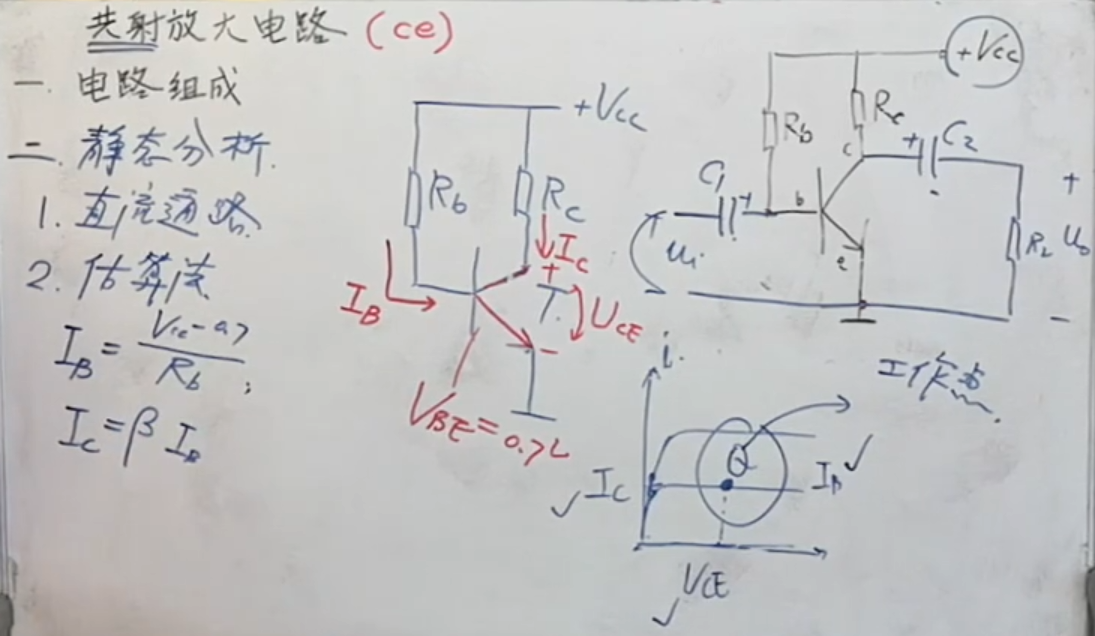 共射放大电路 (ce)
一. 电路组成
二. 静态分析.
1. 直流通路
2. 估算法
I_B = (V_cc-0.7)/R_b ;
I_C = β I_B
+Vcc
R_b
R_c
I_C
I_B
+
T
U_CE
-
V_BE = 0.7V
+Vcc
R_b
R_c
c
+ C_2
C_1 +
b
e
u_i
R_L
+
U_o
-
工作点
i
Q
I_C
I_B
V_CE